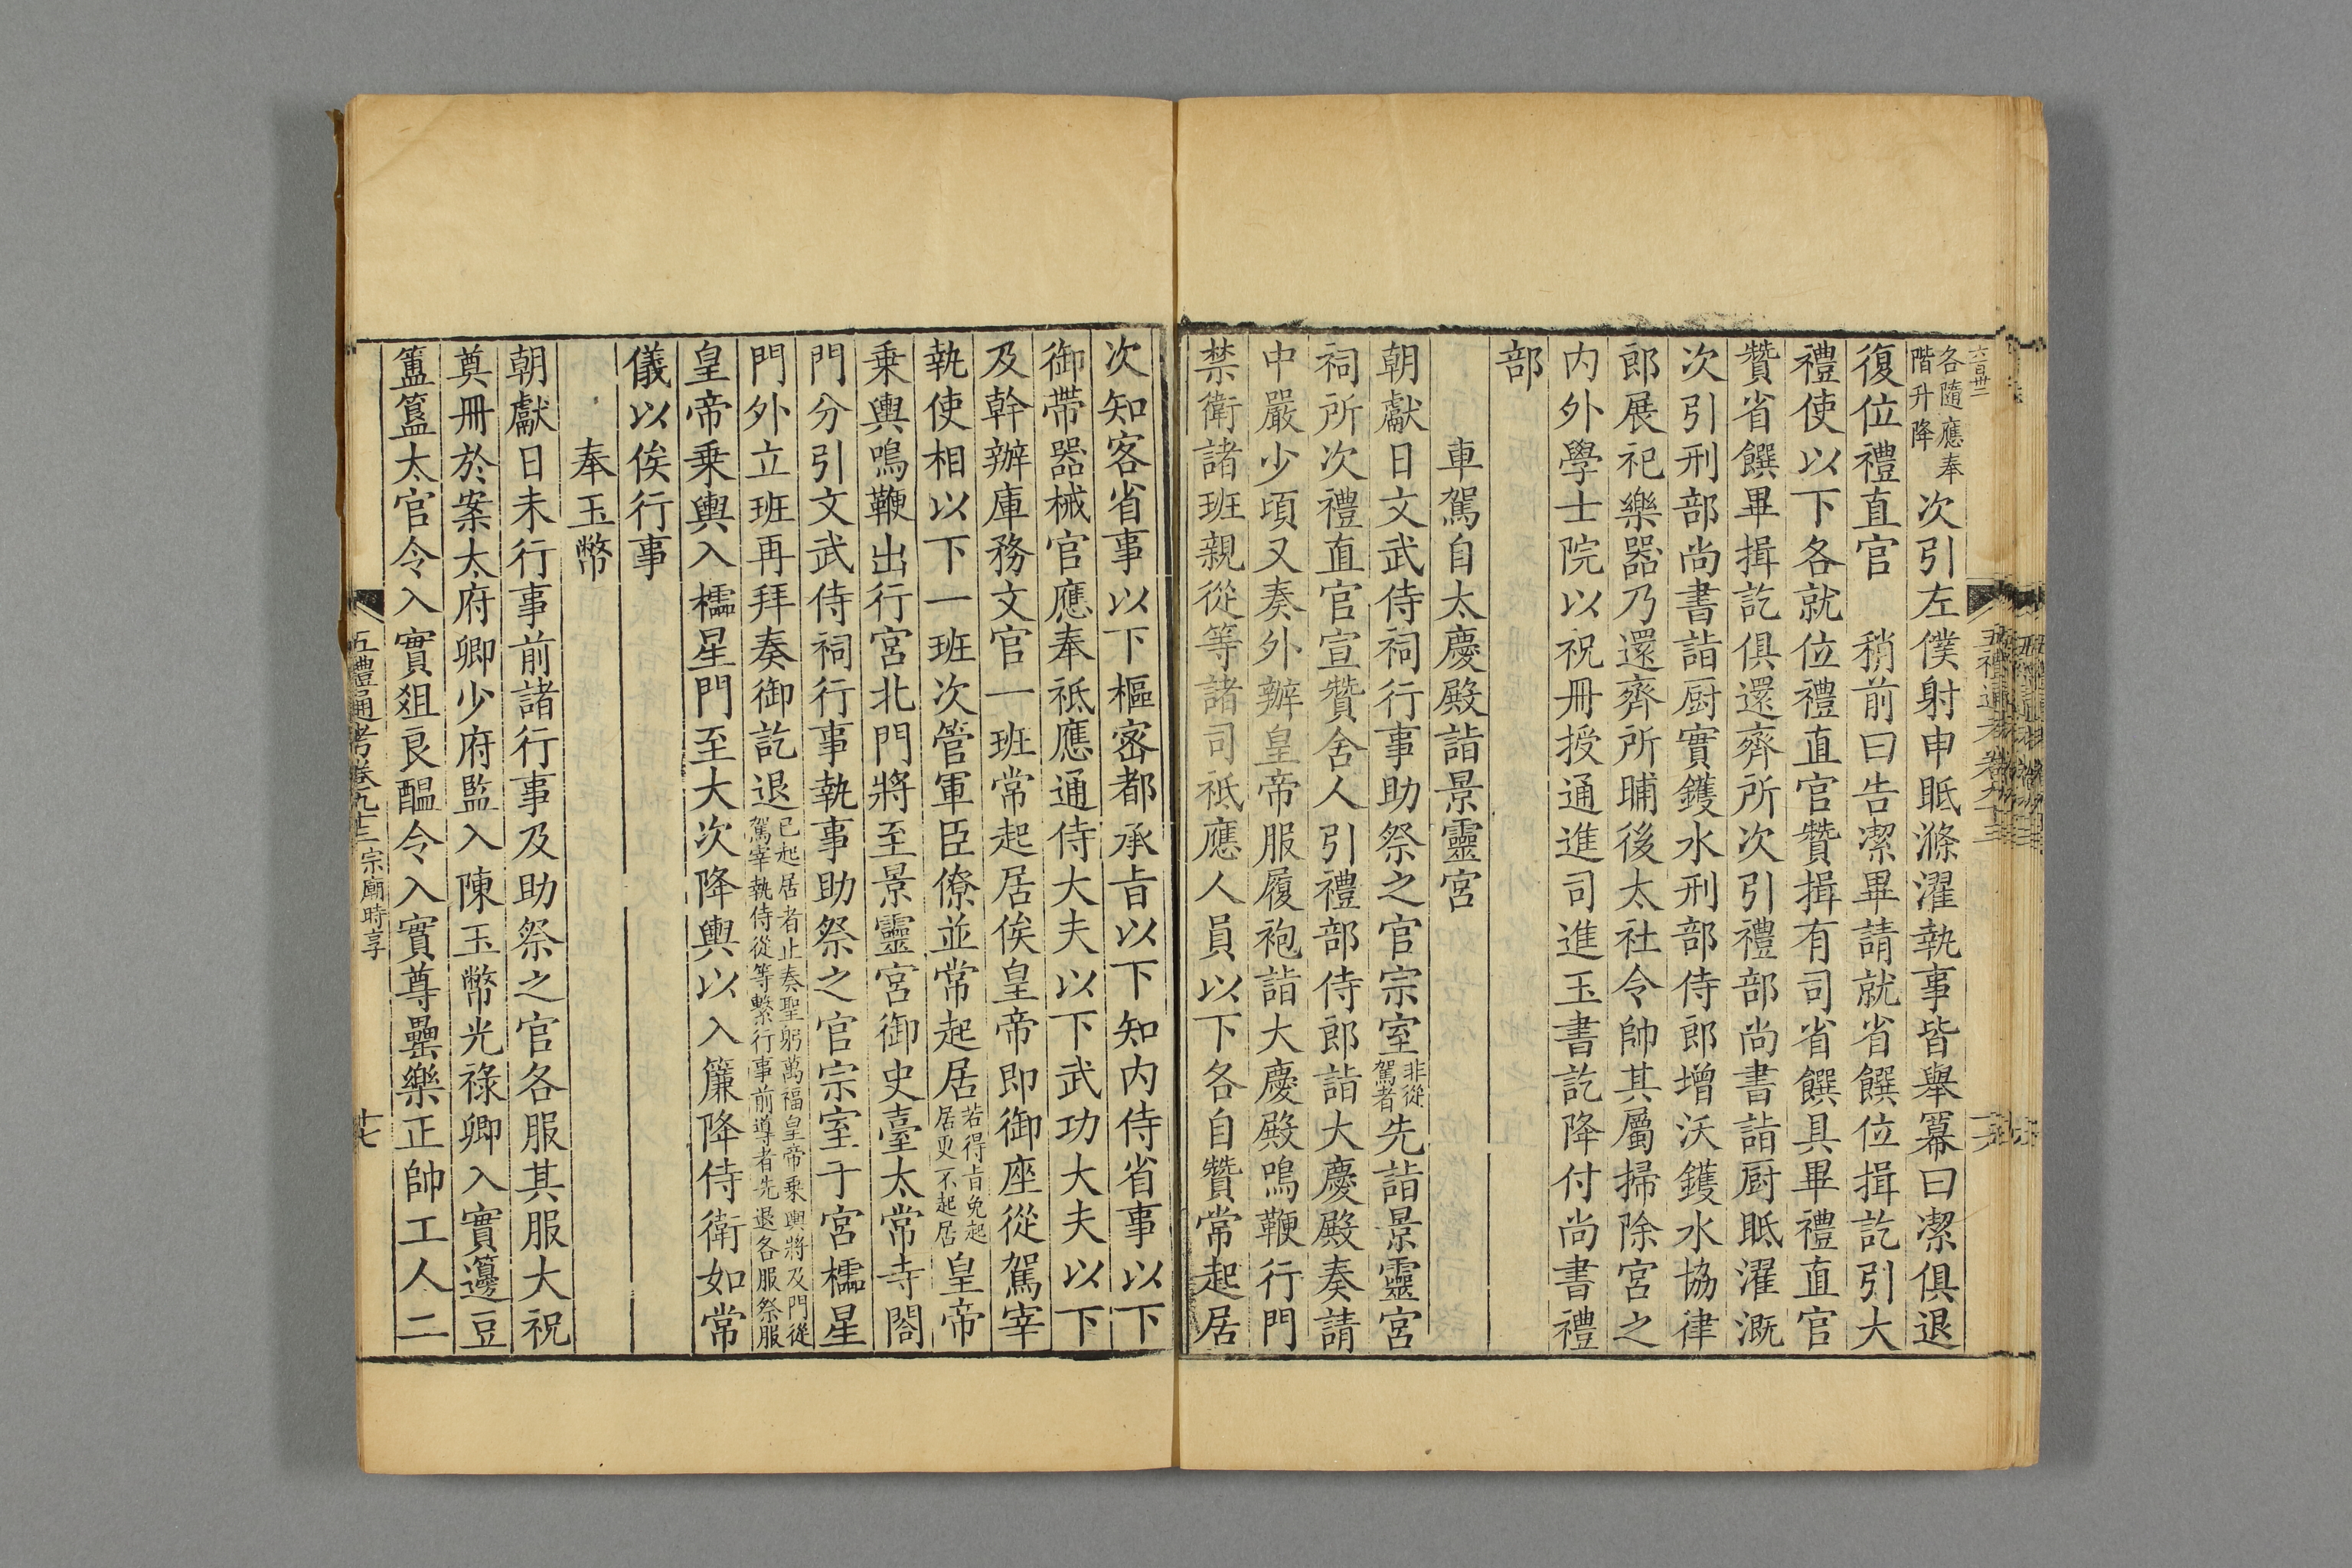 各隨應奉階升降次引左僕射申眡滌濯執事皆舉冪曰潔俱退
復位禮直官稍前曰告潔畢請就省饌位揖訖引大
禮使以下各就位禮直官贊揖有司省饌具畢禮直官
贊省饌畢揖訖俱還齊所次引禮部尚書詣厨眡濯溉
次引刑部尚書詣厨實鑊水刑部侍郎增沃鑊水協律
郎展祀樂器乃還齊所晡後太社令帥其屬掃除宮之
内外學士院以祝冊授通進司進玉書訖降付尚書禮
部
車駕自太慶殿詣景靈宮
朝獻日文武侍祠行事助祭之官宗室非從駕者先詣景靈宮
祠所次禮直官宣贊舍人引禮部侍郎詣大慶殿奏請
中嚴少頃又奏外辦皇帝服履袍詣大慶殿鳴鞭行門
禁衛諸班親從等諸司祗應人員以下各自贊常起居
次知客省事以下樞密都承旨以下知内侍省事以下
御帶器械官應奉祗應通侍大夫以下武功大夫以下
及幹辦庫務文官一班常起居俟皇帝即御座從駕宰
執使相以下一班次管軍臣僚並常起居若得旨免起居更不起居皇帝
乗輿鳴鞭出行宮北門將至景靈宮御史臺太常寺閤
門分引文武侍祠行事執事助祭之官宗室于宮櫺星
門外立班再拜奏御訖退已起居者止奏聖躬萬福皇帝乗輿將及門從駕宰執侍從等繫行事前導者先退各服祭服
皇帝乗輿入櫺星門至大次降輿以入簾降侍衛如常
儀以俟行事
奉玉幣
朝獻日未行事前諸行事及助祭之官各服其服大祝
奠冊於案太府卿少府監入陳玉幣光祿卿入實籩豆
簠簋太官令入實俎良醖令入實尊罍樂正帥工人二
五禮通考卷九十三 宗廟時享
十七